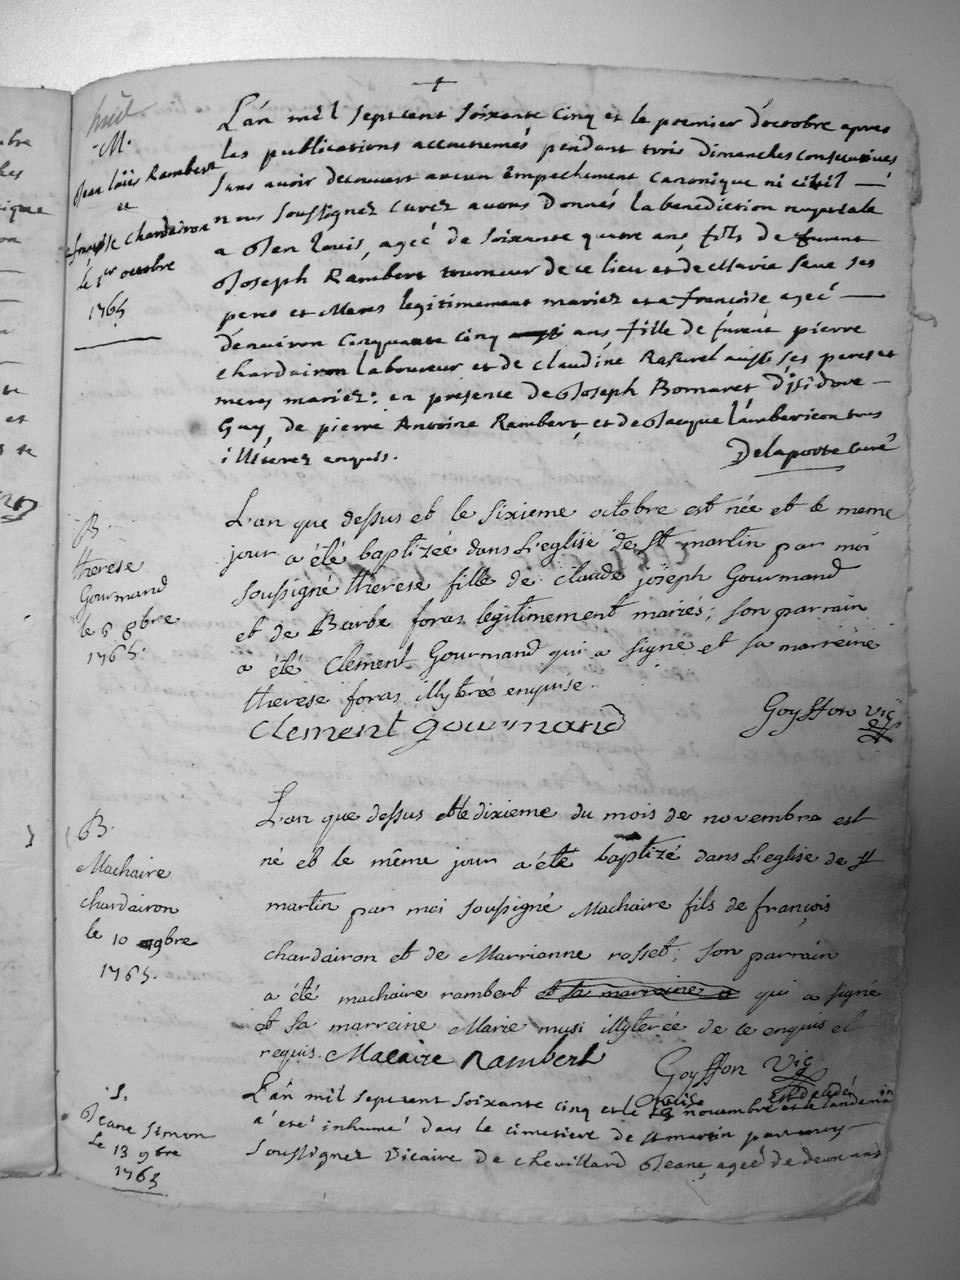 huit
M.
Jean loüis Rambert
et
françoise chardairon
le 1er octobre
1765
L'an mil sept cent soixante cinq et le premier d'octobre apres
les publications accoutumés pendant trois dimanches consecutives
sans avoir decouvert aucun Empechement canonique ni civil
nous soussignez curez avons donnés la benediction nuptiale
a Jean louis, ageé de soixante quatre ans, fils de
Joseph Rambert tourneur de ce lieu et de Marie seve ses
peres et Meres legitimement mariez et a francoise ageé
denviron Cinquante cinq ans fille de pierre
chardairon laboureur et de claudine Rasurel ses peres et
meres mariez: en présence de Joseph Bornaret D'isidore
Guy, de pierre Antoine Rambert, et de Jacque tous
illiterez enquis.
Delaporte curé
B.
therese
Gourmand
le 6 8bre
1765.
L'an que dessus et le sixieme octobre est née et le meme
jour a été baptizée dans L'eglise de St martin par moi
soussigné therese fille de claude joseph Gourmand
et de Barbe foras legitimement mariés; son parrain
a été Clement Gourmand qui a signé et sa marreine
therese foras illyterée enquise.
Clement gourmand
Goyffon Vic
B.
Machaire
chardairon
le 10 9bre
1765.
L'an que dessus et le dixieme du mois de novembre est
né et le même jour a été baptizé dans L'eglise de st
martin par moi soussigné Machaire fils de françois
chardairon et de Marrianne rosset; son parrain
a été machaire rambert et sa marreine a qui a signé
et sa marreine Marie musi illyterée de ce enquis et
requis. Macaire Rambert
Goyffon Vic
S.
Jeane Simon
Le 13 9bre
1765
L'an mil sept cent soixante cinq et le novembre et le landemain
est decedé
a été inhumé dans le cimetiere de st martin par moy
soussignez vicaire de chevillard Jeane, ageé de deux ans